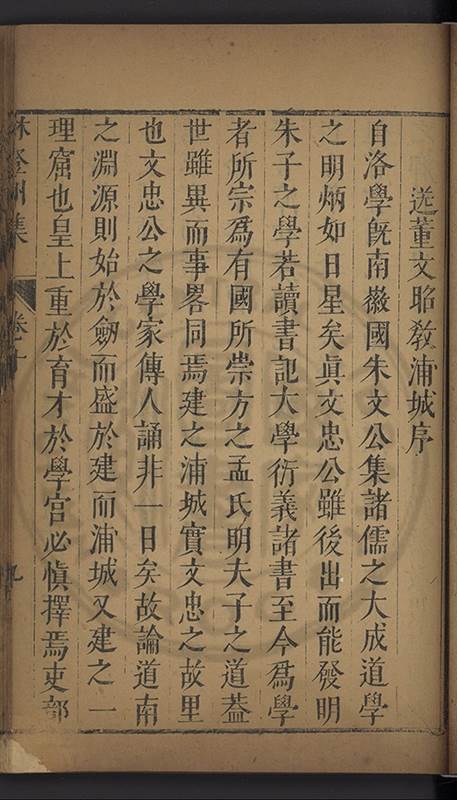 送董文昭敎浦城序
自洛學旣南徽國朱文公集諸儒之大成道學
之明炳如日星矣眞文忠公雖後出而能發明
朱子之學若讀書記大學衍義諸書至今爲學
者所宗爲有國所崇方之孟氏明夫子之道葢
世雖異而事畧同焉建之浦城實文忠之故里
也文忠公之學家傳人誦非一日矣故論道南
之淵源則始於劒而盛於建而浦城又建之一
理窟也皇上重於育才於學官必愼擇焉吏部
林登州集 卷十 九